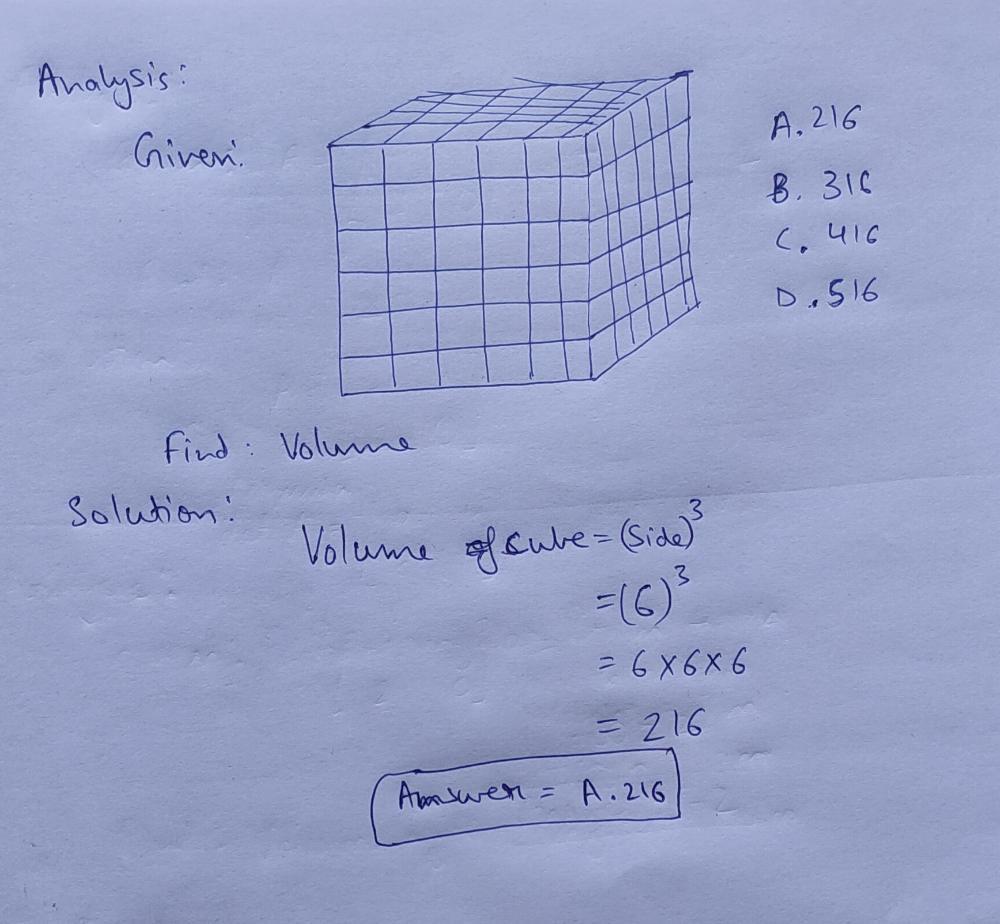 Analysis:
Given:
A. 216
B. 316
C. 416
D. 516
Find : Volume
Solution:
Volume of cube = (Side)³
= (6)³
= 6 × 6 × 6
= 216
Answer = A. 216